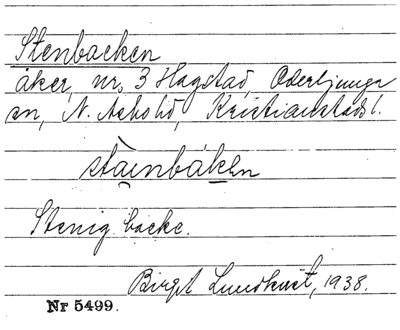 Stenbacken
åker, nr 3 Hagstad, Oderljunga
sn, N. Åsbo hd, Kristianstads l.
stàinbáken
Stenig backe.
Birgit Lundkvist, 1938.
Nr 5499.